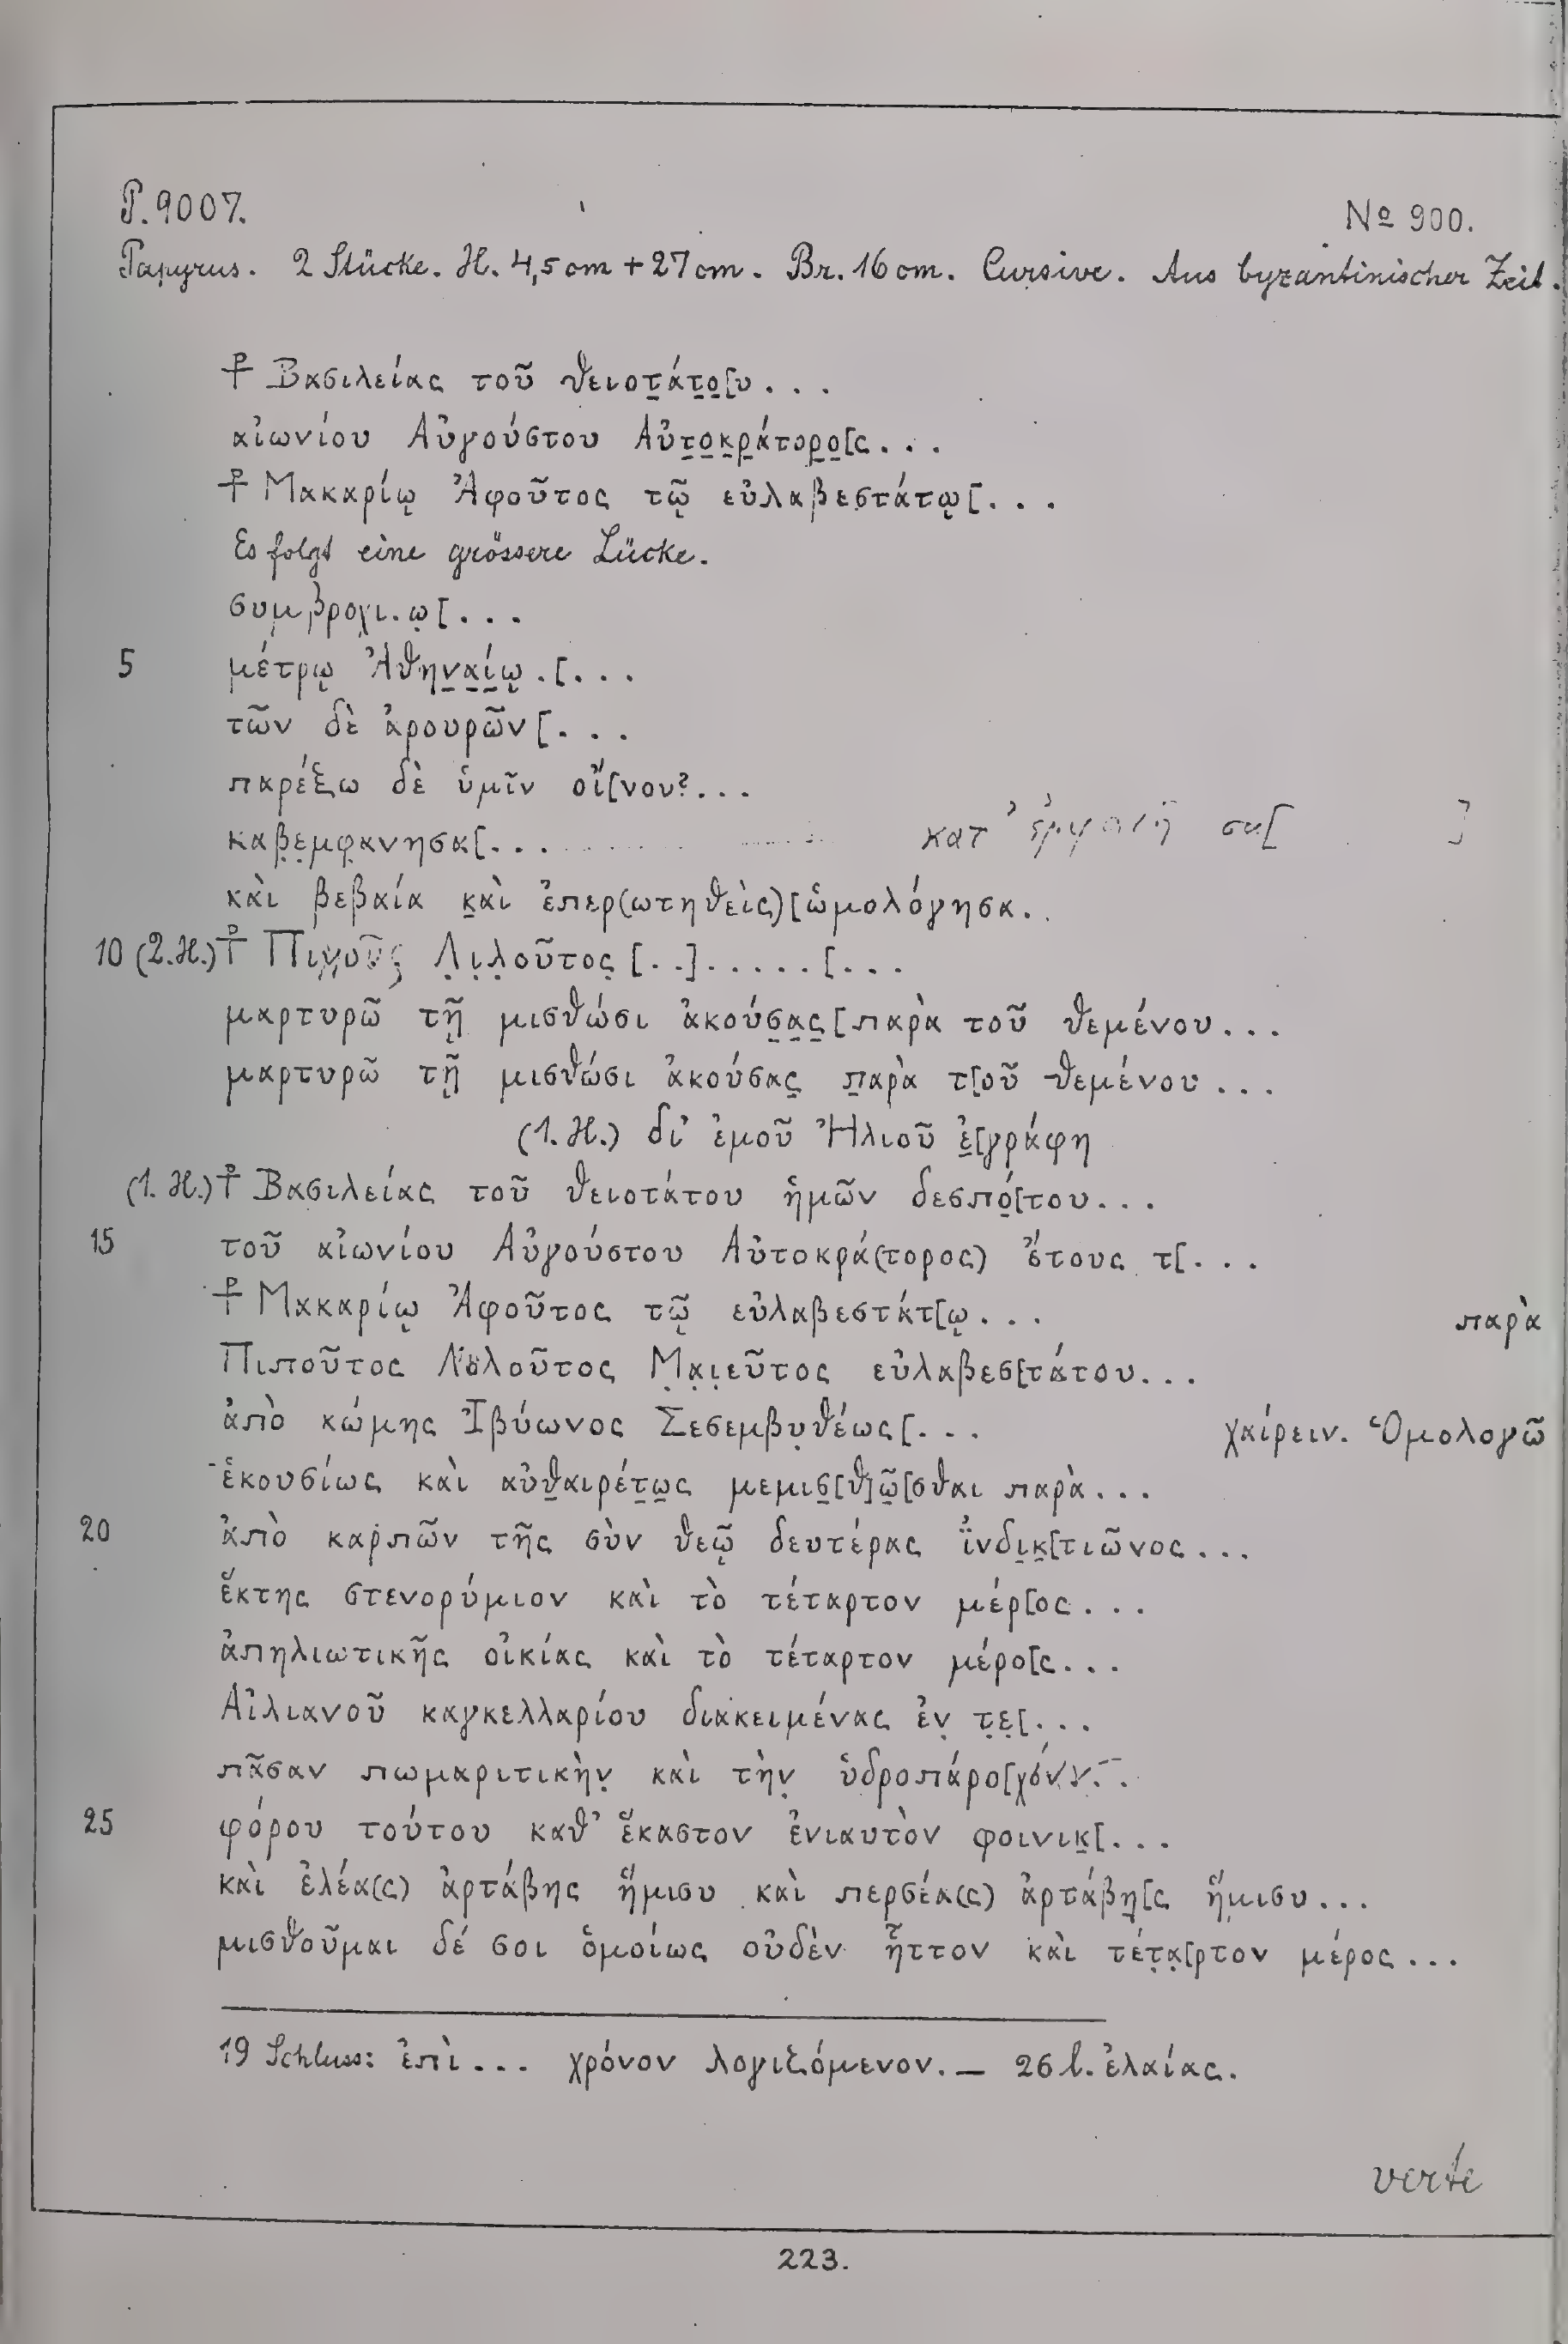 P. 9007.
№ 900.
Papyrus. 2 Stücke. H. 4,5 cm + 27 cm. Br. 16 cm. Cursive. Aus byzantinischer Zeit.
⳨ Βασιλείας τοῦ θειοτ̣ά̣τ̣ο̣[υ...
αἰωνίου Αὐγούστου Αὐτ̣ο̣κ̣ρ̣άτορ̣ο̣[ς...
⳨ Μακαρίῳ Ἀφοῦτος τῷ εὐλαβεστάτῳ[...
Es folgt eine grössere Lücke.
συμβροχι.ω̣[...
5 μέτρῳ Ἀθην̣α̣ί̣ῳ.[...
τῶν δὲ ἀρουρῶν[...
παρέξω δὲ ὑμῖν οἴ[νου?...
καβ̣ε̣μφ̣ανησα[... κατ'
καὶ βεβαία κ̣αὶ ἐπερ(ωτηθεὶς)[ὡμολόγησα..
10 (2.H.) ⳨ Λ̣ι̣λ̣οῦτος̣ [..].....[...
μαρτυρῶ τῇ μισθώσι ἀκούσ̣α̣ς̣[παρὰ τοῦ θεμένου...
μαρτυρῶ τῇ μισθώσι ἀκούσας̣ π̣αρὰ τ[οῦ θεμένου...
(1.H.) δι' ἐμοῦ Ἡλιοῦ ἐ̣[γράφη
(1.H.) ⳨ Βασιλείας τοῦ θειοτάτου ἡμῶν δεσπό̣[του...
15 τοῦ αἰωνίου Αὐγούστου Αὐτοκρά(τορος) ἔτους τ[...
⳨ Μακαρίῳ Ἀφοῦτος τῷ εὐλαβεστάτ[ῳ... παρὰ
Πιποῦτος Μ̣α̣ι̣εῦτος εὐλαβεσ[τάτου...
ἀπὸ κώμης Ἰβύωνος Σεσεμβυ̣θέως[... χαίρειν. Ὁμολογῶ
ἑκουσίως καὶ αὐθ̣αιρέτ̣ω̣ς μεμισ̣[θ]ῶ̣[σθαι παρὰ...
20 ἀπὸ καρπῶν τῆς σὺν θεῷ δευτέρας ἰνδι̣κ̣[τιῶνος...
ἕκτης στενορύμιον καὶ τὸ τέταρτον μέρ[ος...
ἀπηλιωτικῆς οἰκίας καὶ τὸ τέταρτον μέρο[ς...
Αἰλιανοῦ καγκελλαρίου διακειμένας ἐν̣ τ̣ε̣[...
πᾶσαν πωμαριτικὴν̣ καὶ τὴν̣ ὑδροπάρο[χόν...
25 φόρου τούτου καθ' ἕκαστον ἐνιαυτὸν φοινικ̣[...
καὶ ἐλέα(ς) ἀρτάβης ἥμισυ καὶ περσέα(ς) ἀρτάβη̣[ς ἥμισυ...
μισθοῦμαι δέ σοι ὁμοίως οὐδὲν ἧττον καὶ τέτ̣α̣[ρτον μέρος...
19 Schluss: ἐπὶ... χρόνον λογιζόμενον. — 26 l. ἐλαίας.
verte
223.